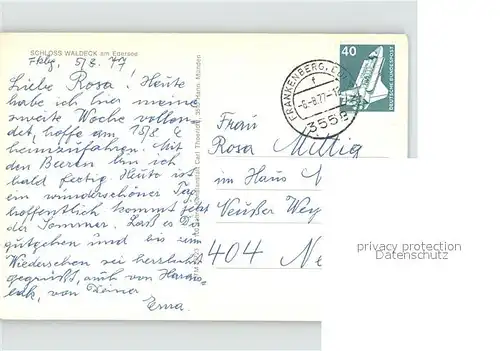 SCHLOSS WALDECK am Edersee
Fkbg. 5/8. 77
Liebe Rosa! Heute
habe ich hier meine
zweite Woche vollen-
det, hoffe am 15/8
heimzufahren. Mit
den Beeren bin ich
bald fertig. Heute ist
ein wunderschöner Tag,
hoffentlich kommt jetzt
der Sommer. Laß es Dir
gutgehen und bis zum
Wiedersehen sei herzlichst
gegrüßt, auch von
von Deiner
Erna.
40
DEUTSCHE BUNDESPOST
FRANKENBERG
-6.-8.77-
3558
Frau
Rosa Mittig
im Haus
Neußer Wey
404 Ne
privacy protection
Veränderung